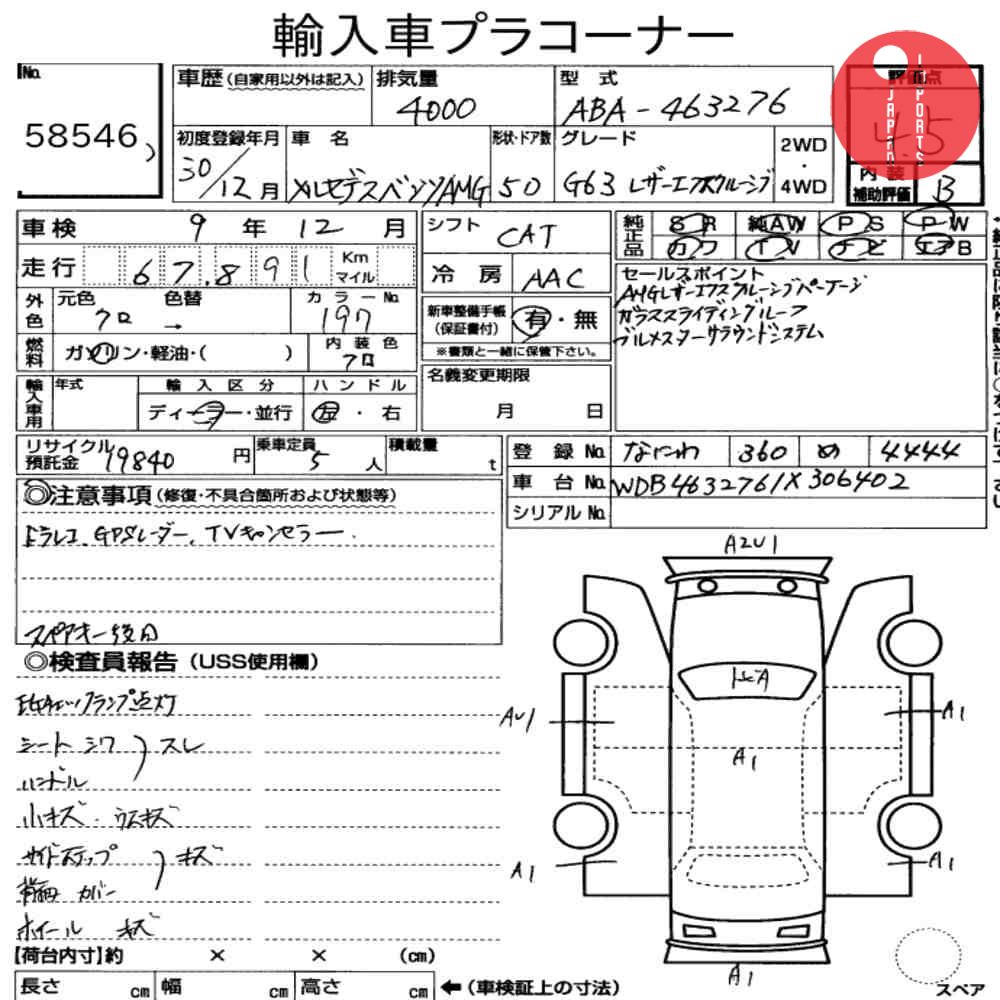 輸入車プラコーナー
No.
58546
車歴(自家用以外は記入)
排気量
4000
型式
ABA-463276
評価点
4.5
JAPAN
IMPORTS
初度登録年月
30/12月
車名
メルセデスベンツAMG
形状・ドア数
50
グレード
G63 レザーエクスクルーシブ
2WD
・
4WD
内装
補助評価
B
車検 9年12月
シフト
CAT
純正品
SR 純AW PS PW
カワ TV ナビ エアB
走行 67,891 Km
マイル
冷房 AAC
セールスポイント
AMGレザーエクスクルーシブパッケージ
ガラススライディングルーフ
ブルメスターサラウンドシステム
外色
元色
クロ
色替
→
カラーNo.
197
新車整備手帳
(保証書付)
有・無
※書類と一緒に保管下さい。
燃料
ガソリン・軽油・( )
内装色
クロ
名義変更期限
月 日
輸入車用
年式
輸入区分
ディーラー・並行
ハンドル
左・右
リサイクル
預託金 19840円
乗車定員
5人
積載量
t
登録No. なにわ 360 め 4444
車台No. WDB4632761X306402
シリアルNo.
◎注意事項(修復・不具合箇所および状態等)
ドラレコ、GPSレーダー、TVキャンセラー.
スペアキー後日
◎検査員報告(USS使用欄)
点灯
シート シワ
スレ
ハンドル
小キズ・
サイドステップ
キズ
背面 カバー
ホイール キズ
A2U1
AU1
A1
A1
A1
A1
A1
スペア
【荷台内寸】約 × × (cm)
長さ cm 幅 cm 高さ cm ←(車検証上の寸法)